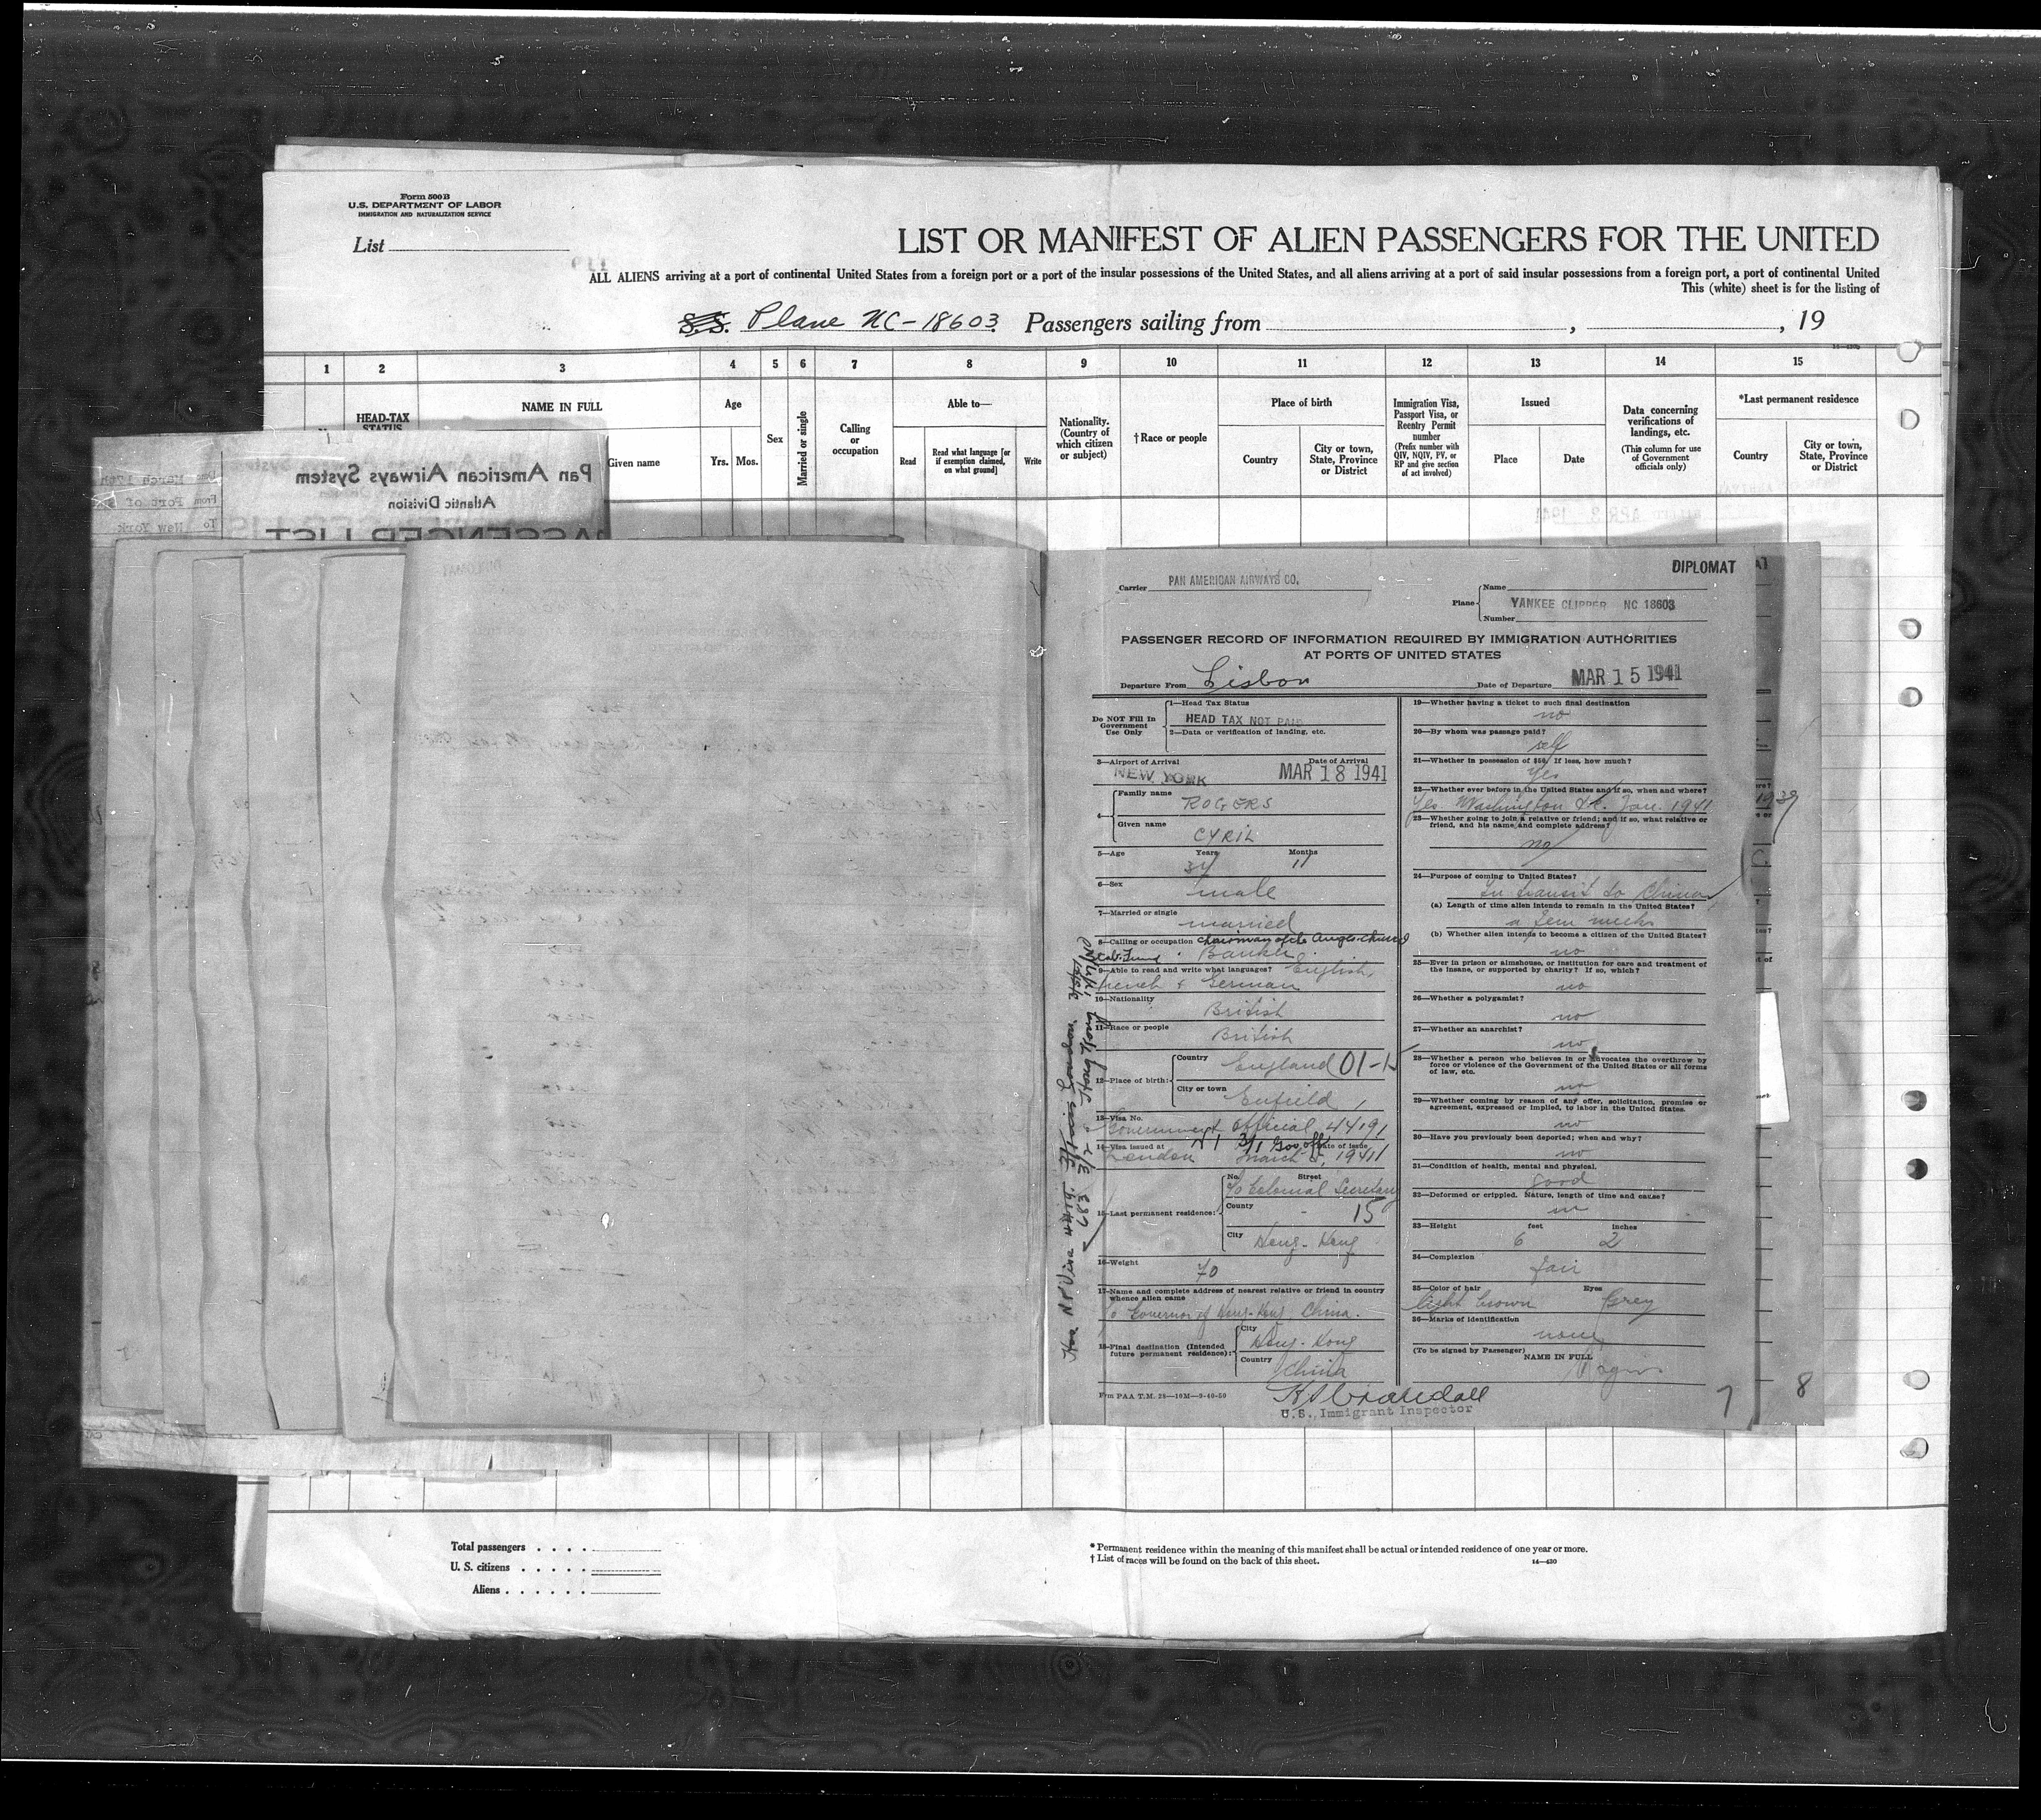 Form 500B
U.S. DEPARTMENT OF LABOR
IMMIGRATION AND NATURALIZATION SERVICE
List
LIST OR MANIFEST OF ALIEN PASSENGERS FOR THE UNITED
ALL ALIENS arriving at a port of continental United States from a foreign port or a port of the insular possessions of the United States, and all aliens arriving at a port of said insular possessions from a foreign port, a port of continental United
This (white) sheet is for the listing of
S.S. Plane NC-18603 Passengers sailing from , , 19
1 2 3 4 5 6 7 8 9 10 11 12 13 14 15
HEAD-TAX
STATUS
NAME IN FULL
Given name
Age
Yrs. Mos.
Sex
Married or single
Calling
or
occupation
Able to—
Read
Read what language [or
if exemption claimed,
on what ground]
Write
Nationality.
(Country of
which citizen
or subject)
†Race or people
Place of birth
Country
City or town,
State, Province
or District
Immigration Visa,
Passport Visa, or
Reentry Permit
number
(Prefix number with
QIV, NQIV, PV, or
RP and give section
of act involved)
Issued
Place
Date
Data concerning
verifications of
landings, etc.
(This column for use
of Government
officials only)
*Last permanent residence
Country
City or town,
State, Province
or District
Pan American Airways System
Atlantic Division
PASSENGER LIST
Date March 17th
From Port of
To New York
DIPLOMAT
Carrier PAN AMERICAN AIRWAYS CO.
Name
Plane YANKEE CLIPPER NC 18603
Number
PASSENGER RECORD OF INFORMATION REQUIRED BY IMMIGRATION AUTHORITIES
AT PORTS OF UNITED STATES
Departure From Lisbon Date of Departure MAR 15 1941
Do NOT Fill in
Government
Use Only
1—Head Tax Status
HEAD TAX NOT PAID
2—Data or verification of landing, etc.
3—Airport of Arrival Date of Arrival
NEW YORK MAR 18 1941
4— Family name
ROGERS
Given name
CYRIL
5—Age Years Months
34 11
6—Sex
male
7—Married or single
married
8—Calling or occupation Chairman of the Anglo-Chinese
Banker
9—Able to read and write what languages? English,
French & German
10—Nationality
British
11—Race or people
British
12—Place of birth:
Country
England 01-15
City or town
Enfield
13—Visa No.
Government Official 4419
14—Visa issued at Date of issue
London March 5, 1941
3/1 Gov off
15—Last permanent residence:
No. Street
c/o Colonial Secretary
County
15
City
Hong-Kong
16—Weight
70
17—Name and complete address of nearest relative or friend in country
whence alien came
c/o Governor of Hong-Kong, China.
18—Final destination (Intended
future permanent residence):
City
Hong-Kong
Country
China
Frm PAA T.M. 28—10M—9-40-50
U.S. Immigrant Inspector
19—Whether having a ticket to such final destination
no
20—By whom was passage paid?
self
21—Whether in possession of $50, If less, how much?
Yes
22—Whether ever before in the United States and if so, when and where?
Yes. Washington d.c. Jan. 1941
23—Whether going to join a relative or friend; and if so, what relative or
friend, and his name and complete address?
no
24—Purpose of coming to United States?
In transit to China
(a) Length of time alien intends to remain in the United States?
a few weeks
(b) Whether alien intends to become a citizen of the United States?
no
25—Ever in prison or almshouse, or institution for care and treatment of
the insane, or supported by charity? If so, which?
no
26—Whether a polygamist?
no
27—Whether an anarchist?
no
28—Whether a person who believes in or advocates the overthrow by
force or violence of the Government of the United States or all forms
of law, etc.
no
29—Whether coming by reason of any offer, solicitation, promise or
agreement, expressed or implied, to labor in the United States.
no
30—Have you previously been deported; when and why?
no
31—Condition of health, mental and physical.
good
32—Deformed or crippled. Nature, length of time and cause?
no
33—Height feet inches
6 2
34—Complexion
fair
35—Color of hair Eyes
light brown Grey
36—Marks of identification
none
(To be signed by Passenger)
NAME IN FULL
7
8
Total passengers . . . .
U. S. citizens . . . . .
Aliens . . . . . .
*Permanent residence within the meaning of this manifest shall be actual or intended residence of one year or more.
†List of races will be found on the back of this sheet.
14—430